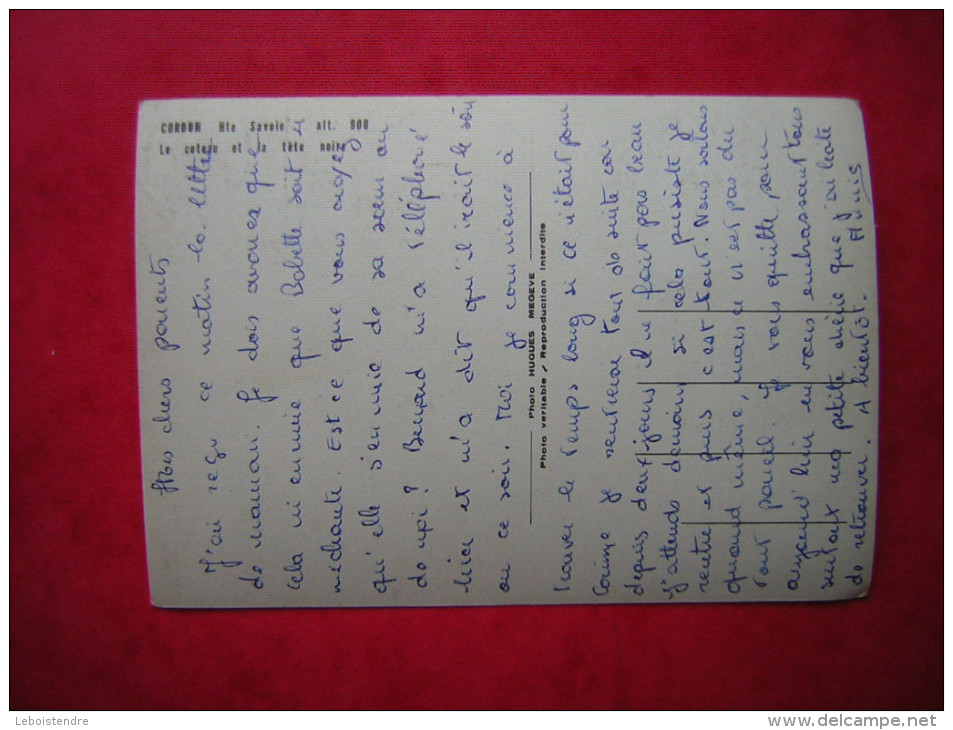 CORDON Hte Savoie alt. 900
Le coteau et la tête noire
Mes chers parents
J'ai reçu ce matin la lettre
de maman. Je dois avouer que
cela m'ennuie que Babette soit si
méchante. Est ce que vous croyez
qu'elle s'ennuie de sa sœur ou
de moi ? Bernard m'a téléphoné
hier et m'a dit qu'il irait le soir
ou ce soir. Moi je commence à
Photo HUGUES MEGEVE
Photo veritable / Reproduction interdite
trouver le temps long si ce n'était pour
Corinne je rentrerai tout de suite car
depuis deux jours il ne fait pas beau
J'attends demain, si cela persiste je
rentre et puis c'est tout. Nous sortons
quand même, mais ce n'est pas du
tout pareil. Je vous quitte pour
aujourd'hui en vous embrassant tous
surtout ma petite chérie que j'ai hâte
de retrouver. A bientôt.
Leboistendre
www.delcampe.net